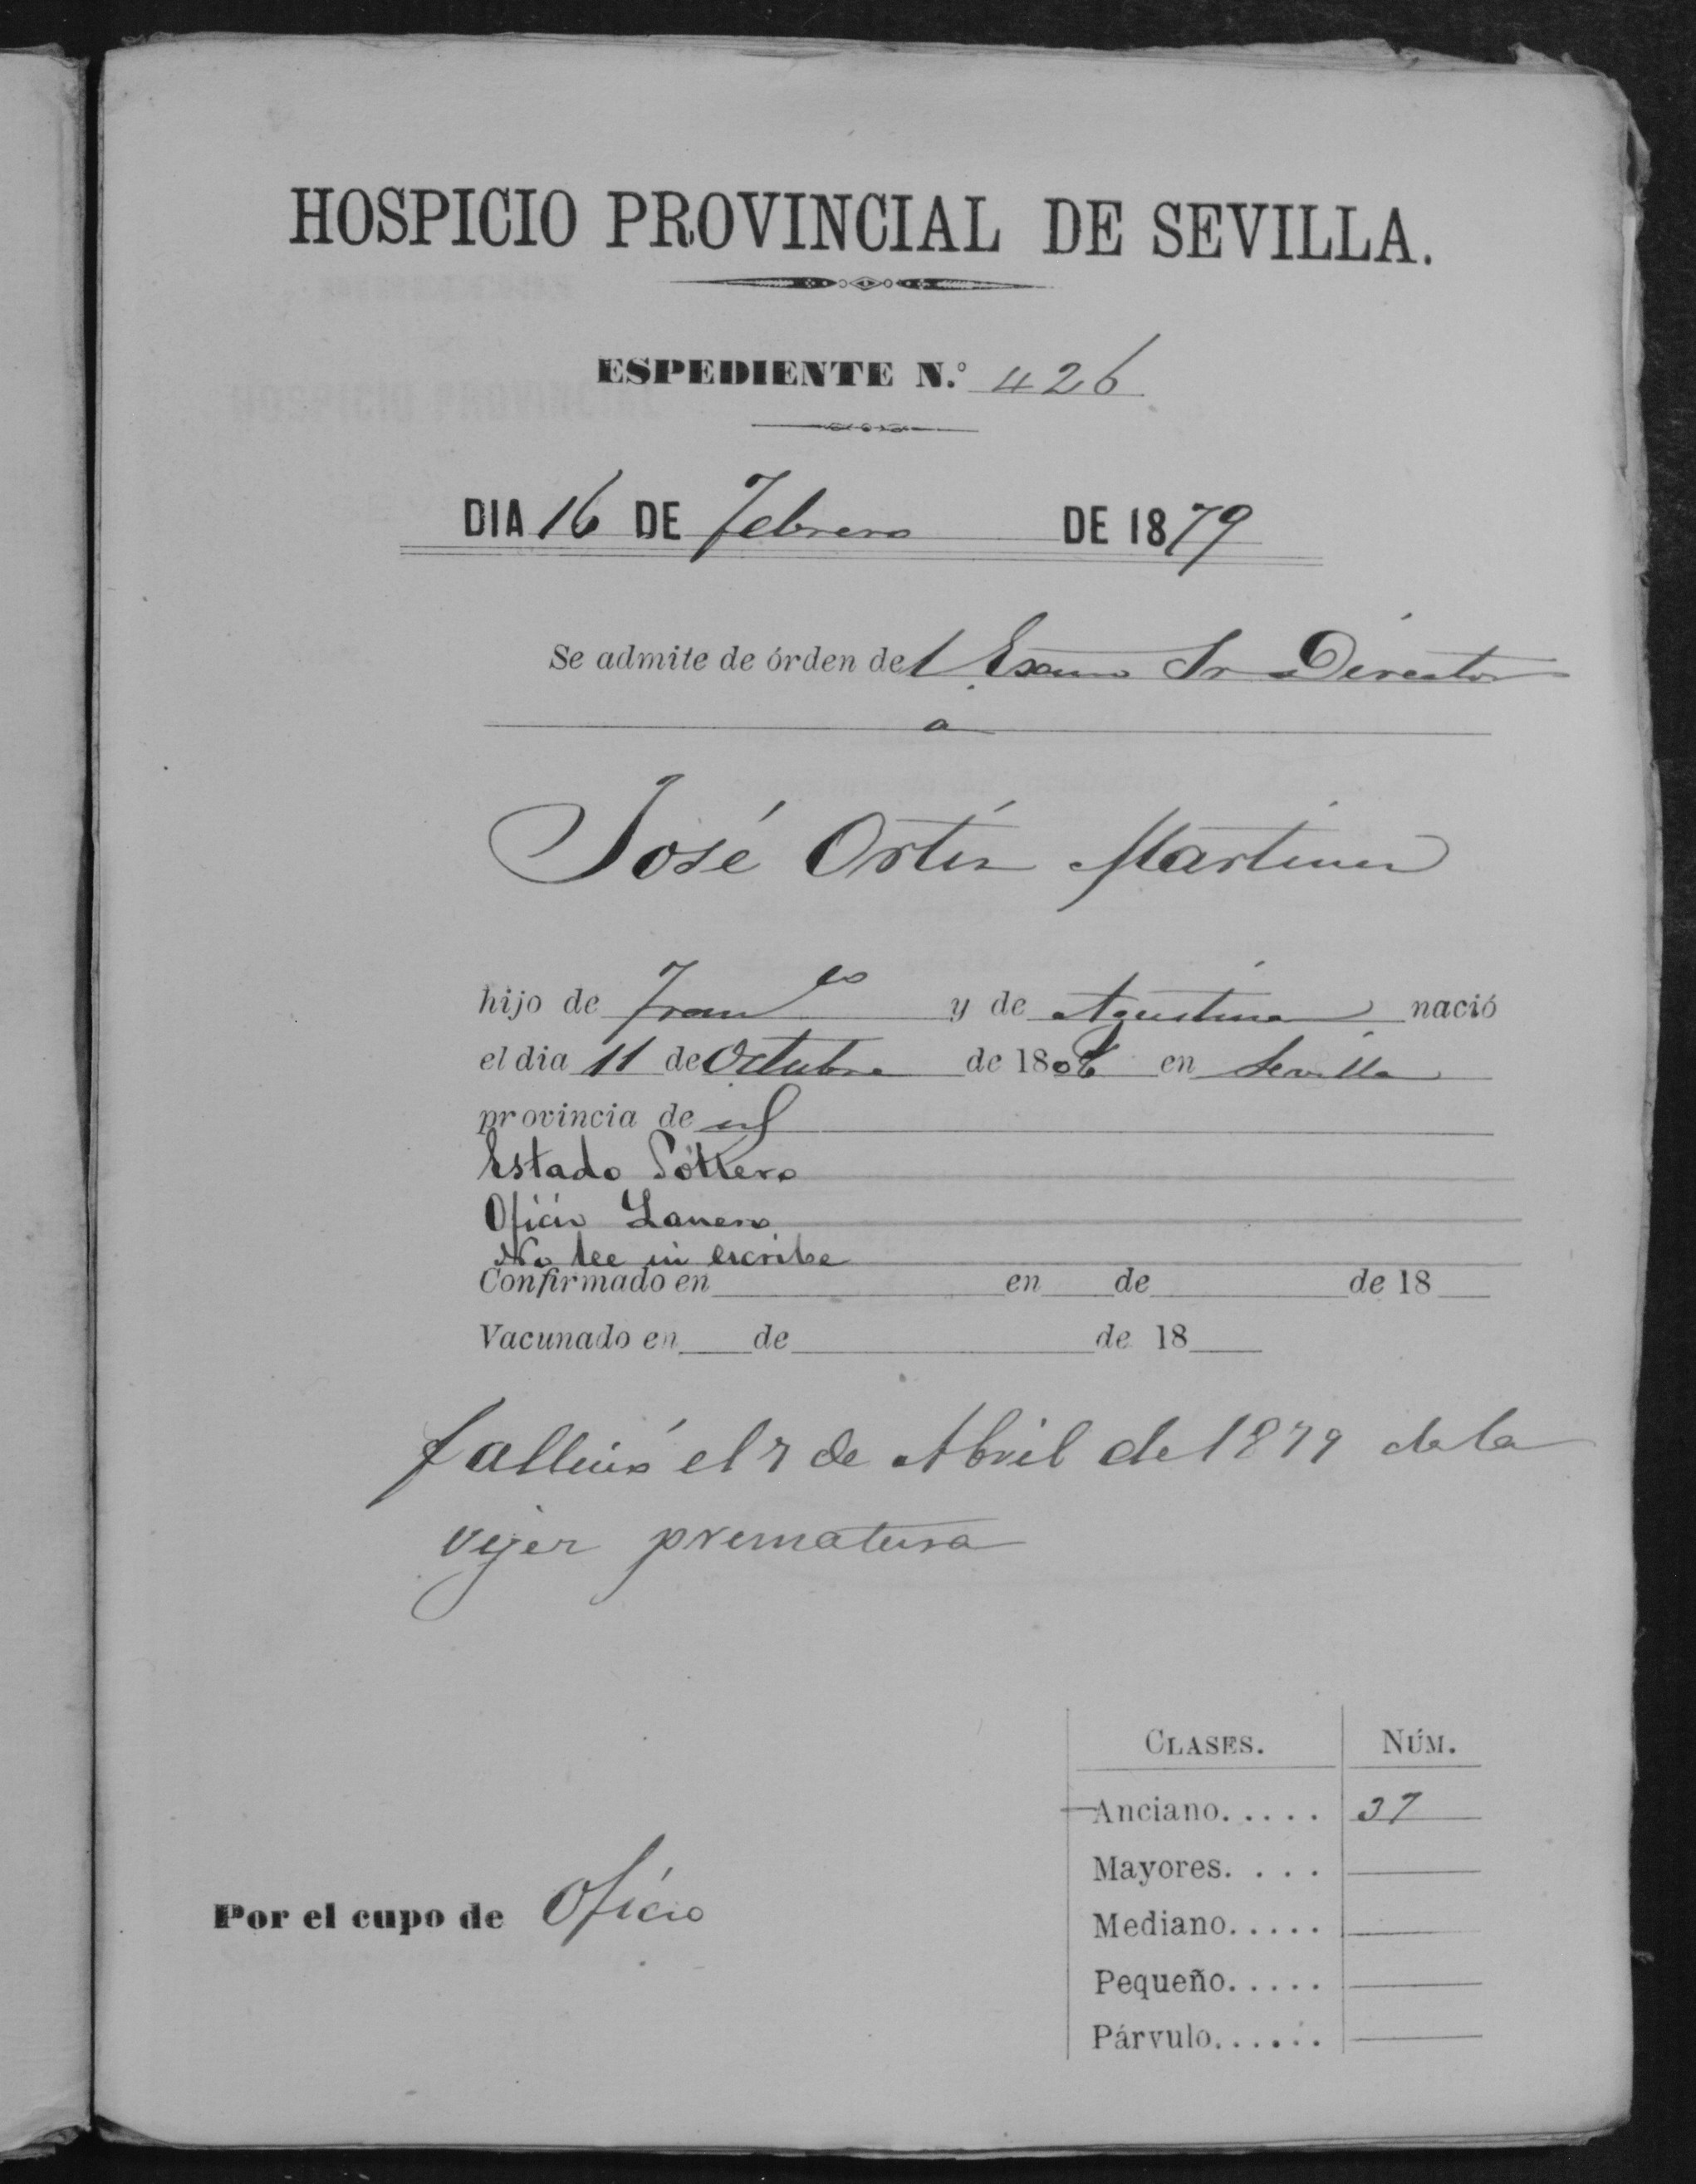 HOSPICIO PROVINCIAL DE SEVILLA.
ESPEDIENTE N.º 426
DIA 16 DE Febrero DE 1879
Se admite de órden del Exmo Sr Director
a
José Ortiz Martinez
hijo de Franco y de Agustina nació
el dia 11 de Octubre de 180 en Sevilla
provincia de id
Estado Soltero
Oficio Lanero
No lee ni escribe
Confirmado en en de de 18
Vacunado en de de 18
falleció el 7 de Abril de 1879 de la
vejez prematura
CLASES. NÚM.
Anciano..... 37
Mayores....
Mediano.....
Pequeño.....
Párvulo......
Por el cupo de Oficio